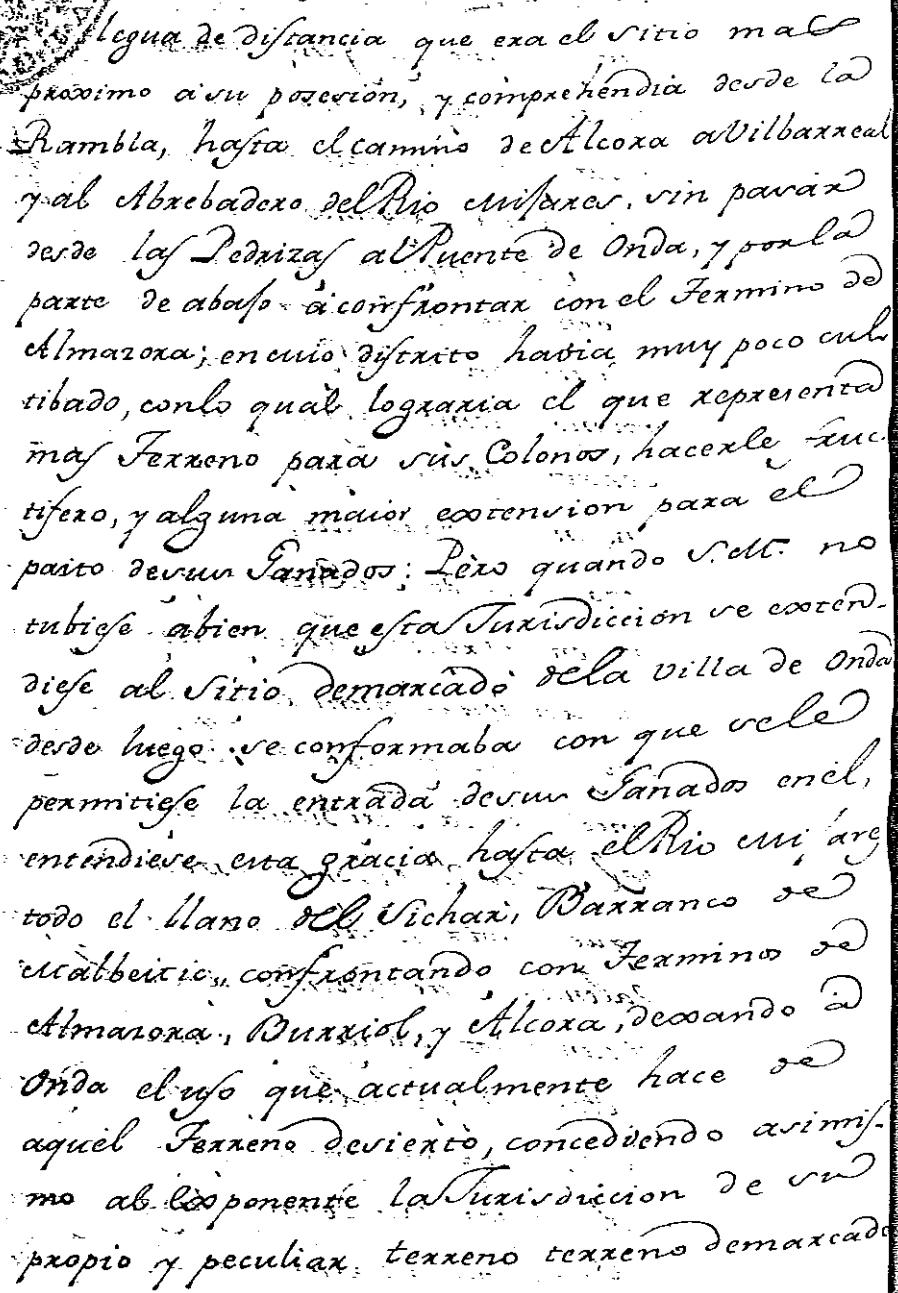 legua de distancia que era el sitio mas
proximo à su posesión, y comprehendia desde la
Rambla, hasta el camino de Alcora a Vilbarreal
y al Abrebadero del Rio Mijares, sin pasar
desde las Pedrizas al Puente de Onda, y por la
parte de abajo à confrontar con el Termino de
Almazora; en cuio distrito havia muy poco cul
tibado, con lo qual lograria el que representa
mas Terreno para sus Colonos, hacerle fruc
tifero, y alguna maior extension para el
pasto de sus Ganados: Pero quando S. M. no
tubiese abien que esta Jurisdiccion se exten-
diese al sitio demarcado de la Villa de Onda
desde luego se conformaba con que se le
permitiese la entrada de sus Ganados en él,
entendiese esta gracia hasta el Rio Mijares
todo el llano del Sichar, Barranco de
Malbeitic, confrontando con Terminos de
Almazora, Burriol, y Alcora, dexando à
Onda el uso que actualmente hace de
aquel Terreno desierto, concediendo asimis-
mo al Exponente la Jurisdiccion de su
propio y peculiar terreno terreno demarcado